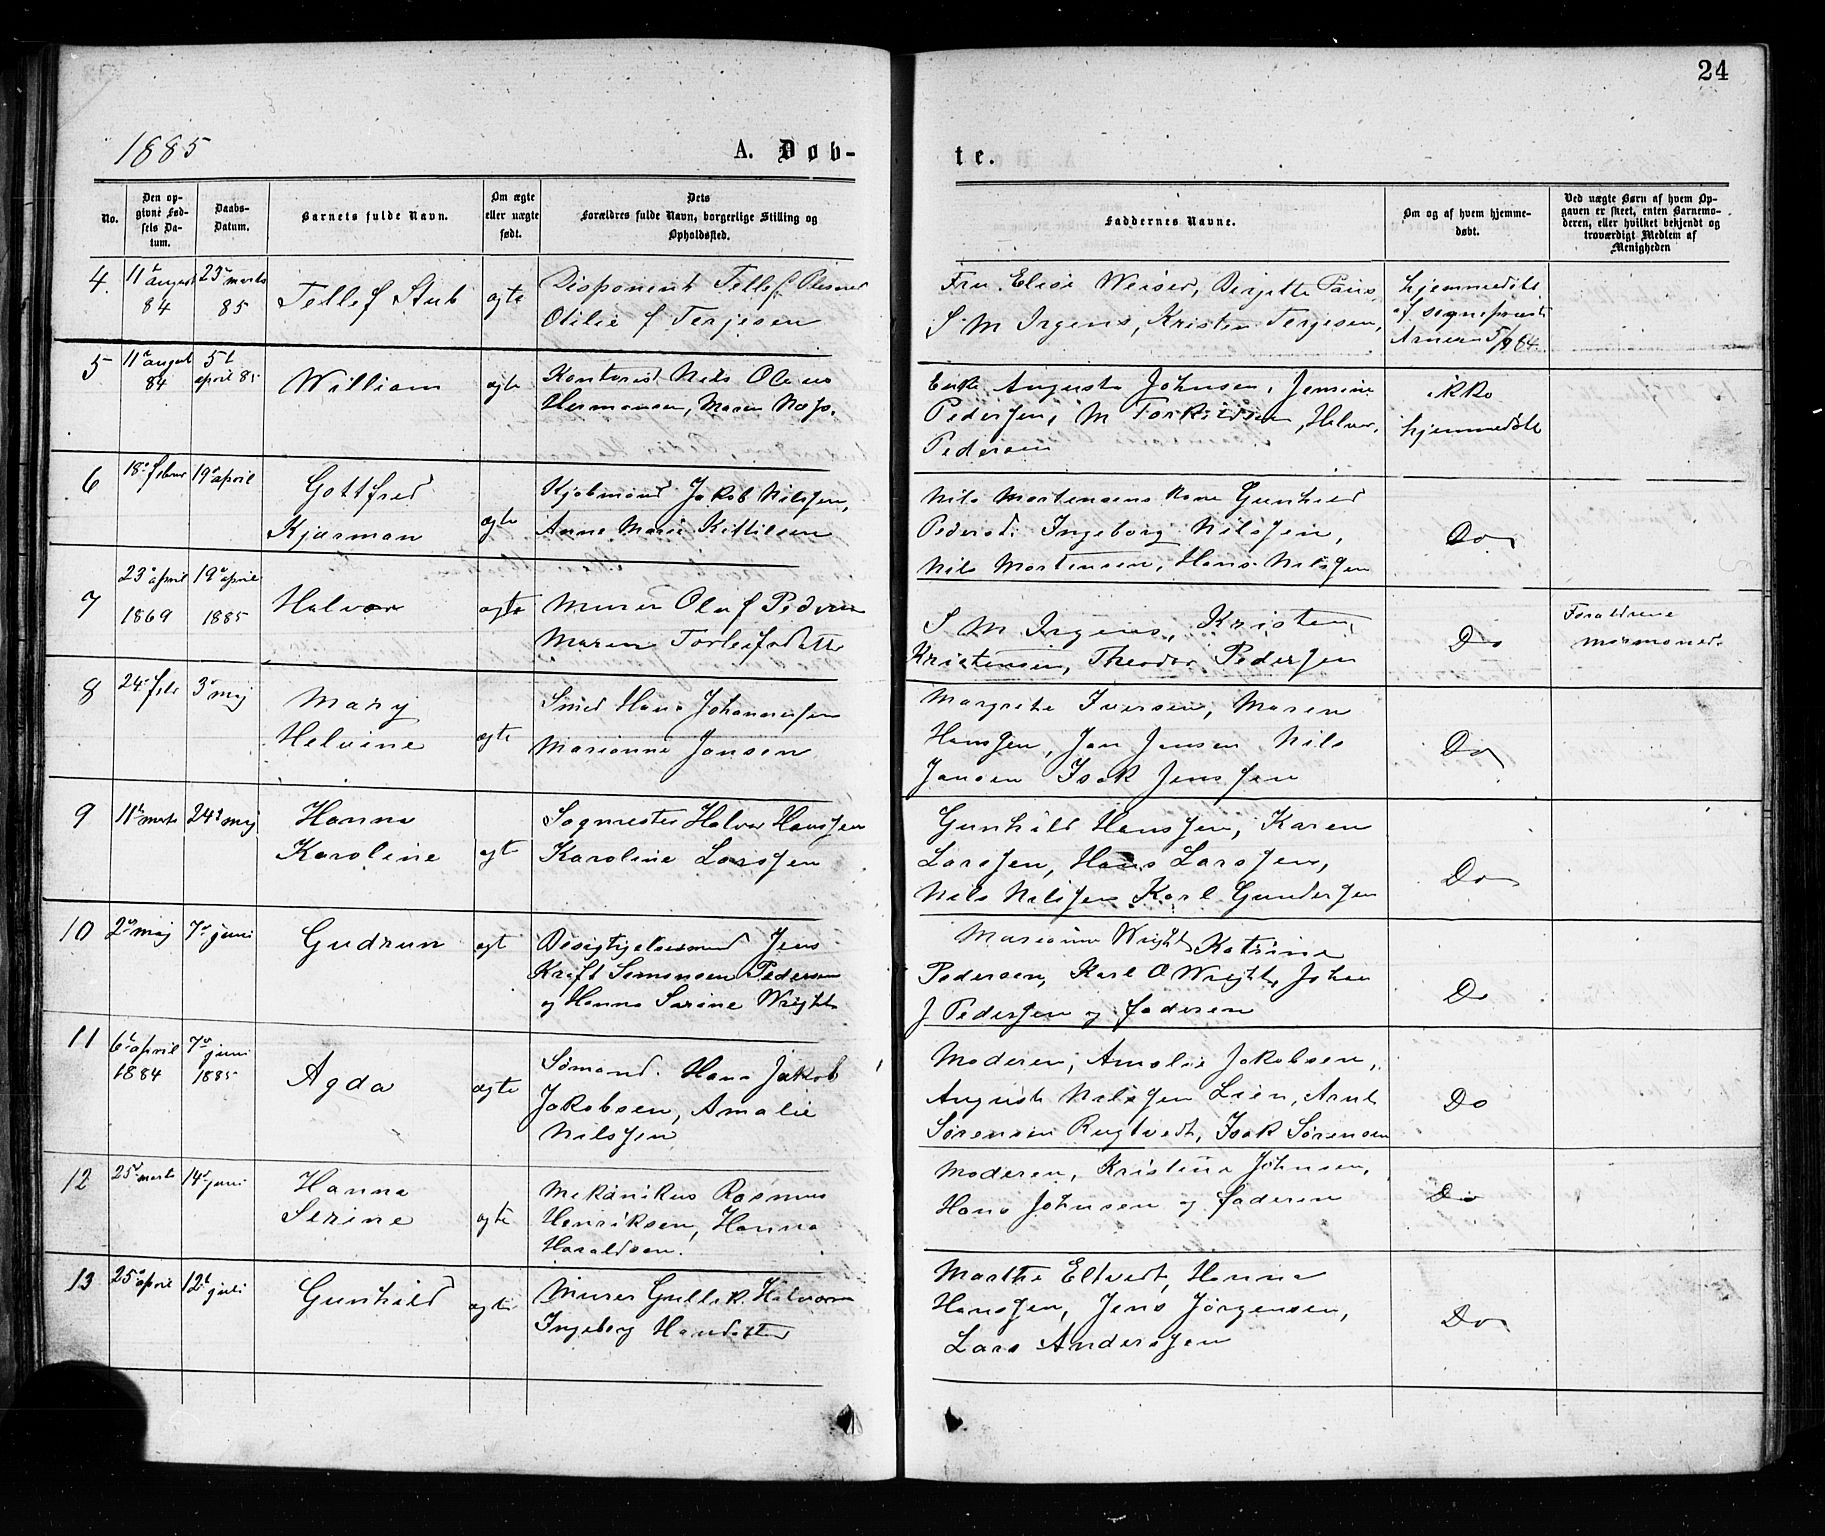 24
1885
A. Døb-
te.
No.
Den op-
givne Fød-
sels Da-
tum.
Daabs-
Datum.
Barnets fulde Navn.
Om ægte
eller uægte
født.
Dets
Forældres fulde Navn, borgerlige Stilling og
Opholdssted.
Faddernes Navne.
Om og af hvem hjemme-
døbt.
Ved uægte Børn af hvem Op-
gaven er skeet, enten Barnemo-
deren, eller hvilket bekjendt og
troværdigt Medlem af
Menigheden
4. 11 august
84
23 marts
85
Tellef Stub
ægte
Disponent Tellef
Otilie f Terjesen
Fru Elise Weiser, Birgitte Paus
S M Irgens, Kristen Terjesen,
hjemmedøbt
af sogneprest
5/9 84.
5
11 august
84
5t
april 85
William
ægte
Kontorist Nils Oleus
Hermansen, Maren
Enke Augusta Johnsen, Jensine
Pedersen, M Torkildsen, Halvor
Pedersen
ikke
hjemmedøbt
6
18 februar
19 april
Gottfred
Kjærman
ægte
Kjøbmand Jakob Nilssen,
Anne Marie Kittilsen
Nils Mortensens kone Gunhild
Pedersd. Ingeborg Nilssen,
Nils Mortensen, Hans Nilssen
Do
7
23 april
1869
19 april
1885
Halvor
ægte
Murer Oluf Pedersen
Maren Torleifsdatter
S M Irgens, Kristen
Kristensen, Theodor Pederssen
Do
Forældrene
mormoner
8
24 febr
3 maj
Mary
Helvine
ægte
Smed Hans Johannessen
Marianne Jansen
Margrethe Iversen, Maren
Hanssen, Jan Jansen Nils
Jansen Isak Jenssen
Do
9
11 marts
24 maj
Hanna
Karoline
ægte
Sagmester Halvor Hanssen
Karoline Larssen
Gunhild Hanssen, Karen
Larssen, Hans Larssen,
Nils Nilssen Karl Gunderssen
Do
10
2 maj
7 juni
Gudrun
ægt
Besigtigelsesmand Jens
Kraft Simonsen Pedersen
og Hanna Serine Wright
Marianne Wright Katrine
Pedersen, Karl O Wright, Johan
J Pederssen og faderen
Do
11
6 april
1884
7 juni
1885
Agda
ægte
Sømand. Hans Jakob
Jakobsen, Amalie
Nilssen
Moderen, Amalie Jakobsen,
August Nilssen Lien, Arnt
Sørensen Rugtvedt, Isak Sørensen
Do
12
25 marts
14 juni
Hanna
Serine
ægte
Mekanikus Rasmus
Henriksen, Hanna
Haraldsen.
Moderen, Kristina Johnsen,
Hans Johnsen og faderen
Do
13
25 april
12t juli
Gunhild
ægte
Murer Gullik Halvorsen
Ingeborg Hansdatter
Marthe Eltvedt, Hanna
Hanssen, Jens Jørgensen,
Lars Anderssen
Do